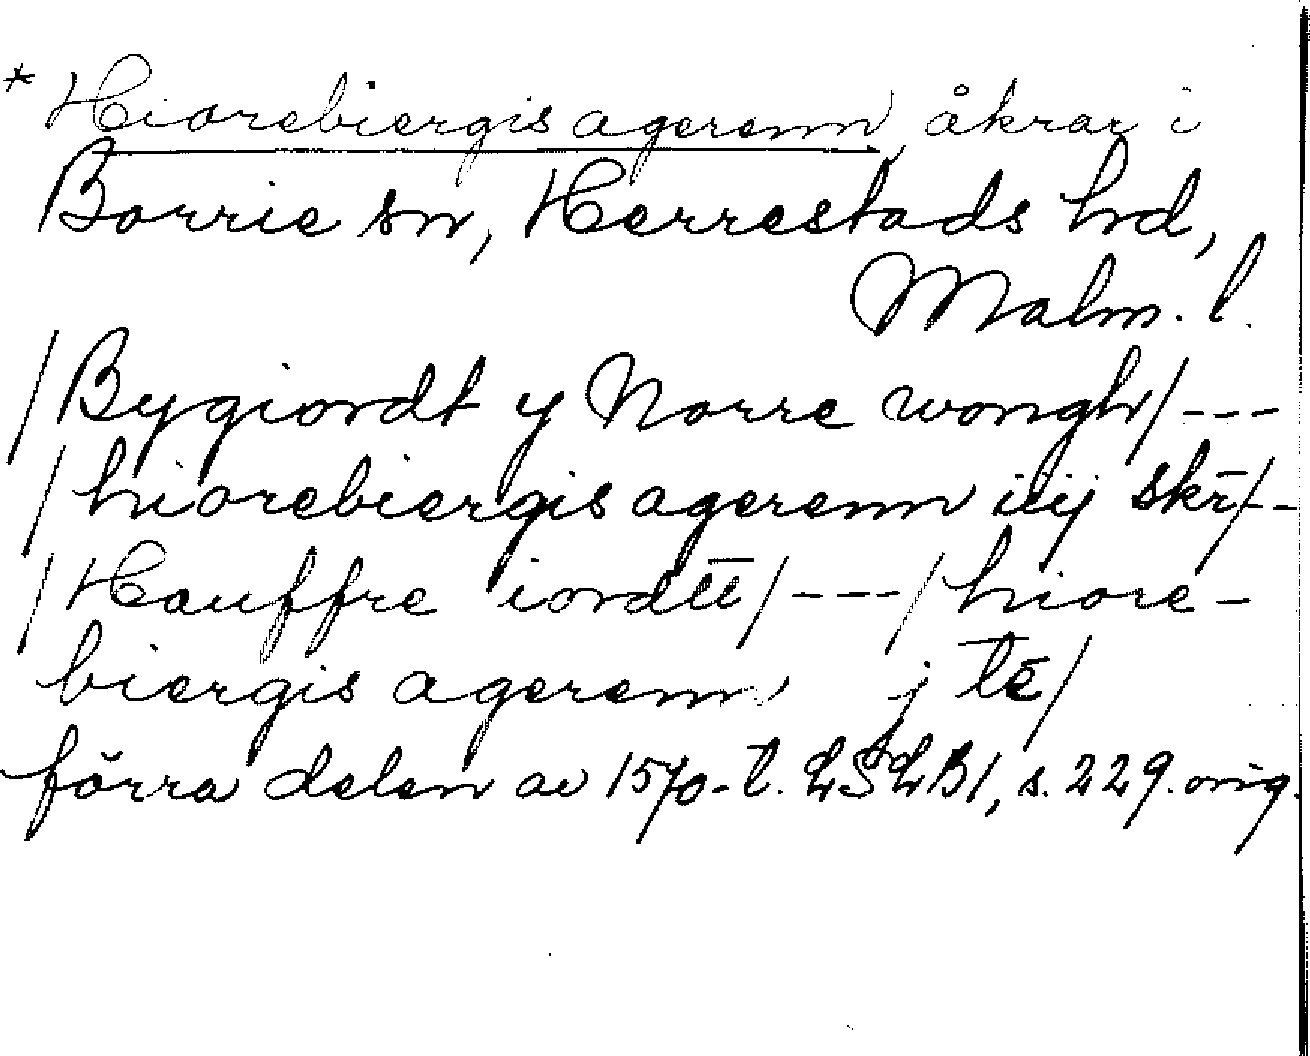 * Hiorebiergis agerenn, åkrar i
Borrie sn, Herrestads hd,
Malm. l.
/Bygiordt y Norre wongh/---
/hiorebiergis agerenn iiij skr̄/--
/Hauffre iordtt̄/---/hiore-
biergis agerenn j tē/
förra delen av 1570-t. LSLB1, s. 229. orig.